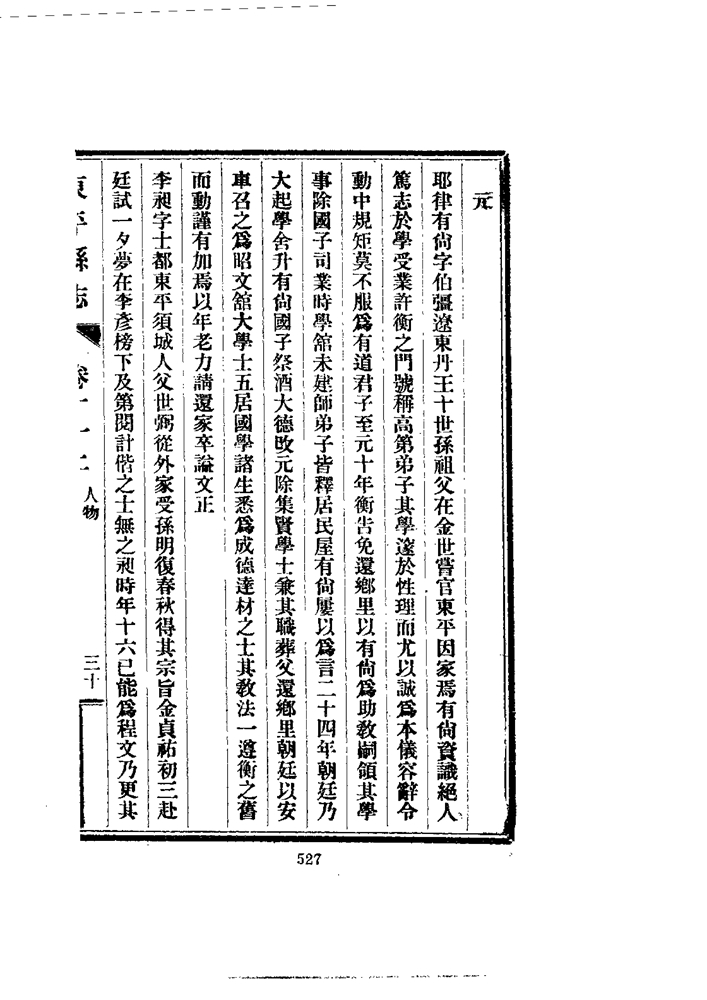 元
耶律有尙字伯彊遼東丹王十世孫祖父在金世嘗官東平因家焉有尙資識絕人
篤志於學受業許衡之門號稱高第弟子其學邃於性理而尤以誠爲本儀容辭令
動中規矩莫不服爲有道君子至元十年衡吿免還鄕里以有尙爲助敎嗣領其學
事除國子司業時學舘未建師弟子皆釋居民屋有尙屢以爲言二十四年朝廷乃
大起學舍升有尙國子祭酒大德改元除集賢學士兼其職葬父還鄕里朝廷以安
車召之爲昭文舘大學士五居國學諸生悉爲成德達材之士其敎法一遵衡之舊
而動謹有加焉以年老力請還家卒謚文正
李昶字士都東平須城人父世弼從外家受孫明復春秋得其宗旨金貞祐初三赴
廷試一夕夢在李彥榜下及第閱計偕之士無之昶時年十六已能爲程文乃更其
東平縣志
卷十一上
人物
三十
527